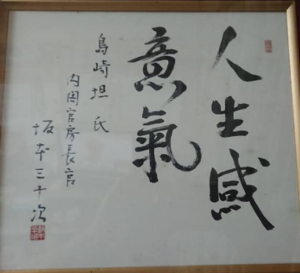 人生感
意氣
島崎坦氏
内閣官房長官
坂本三十次